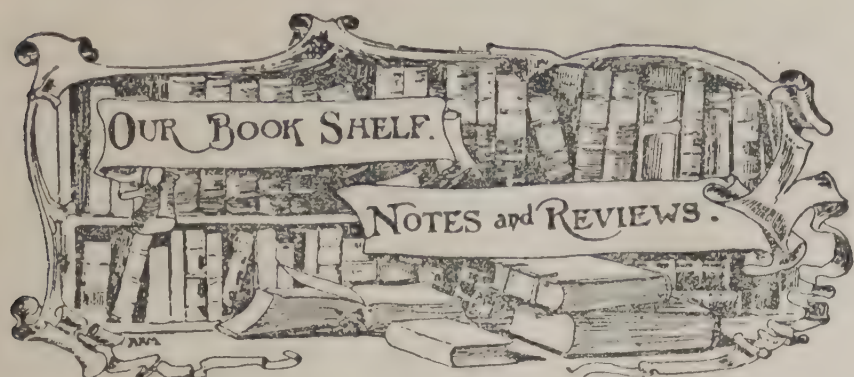 OUR BOOK SHELF.
NOTES and REVIEWS.